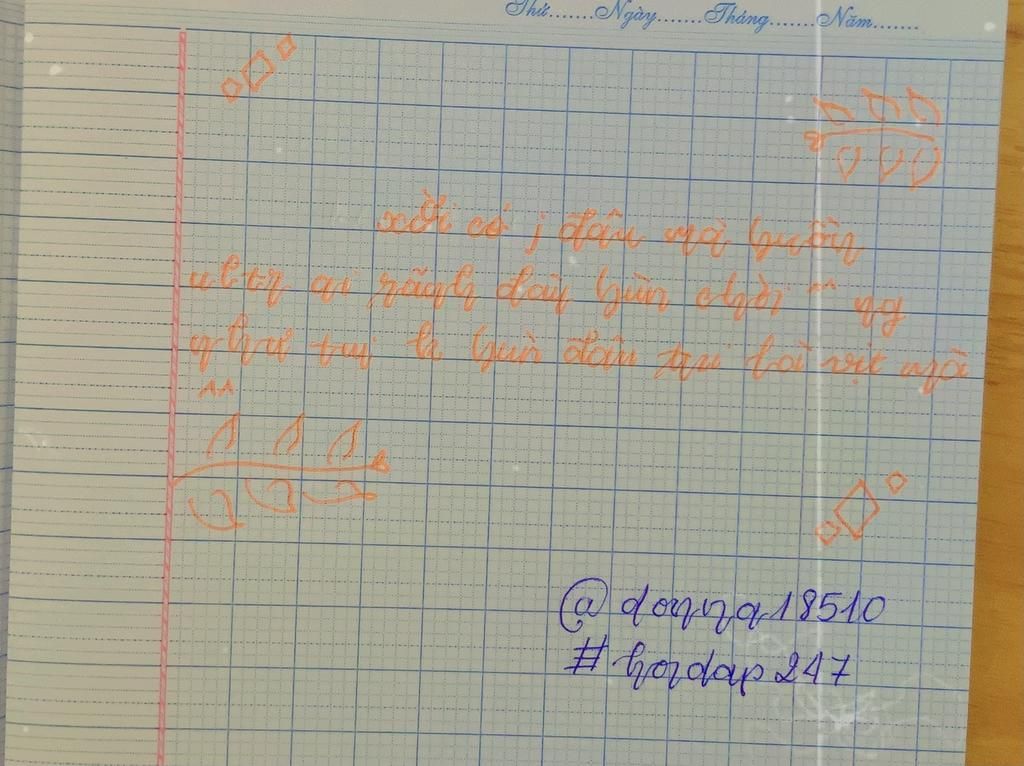 Thứ.......Ngày.......Tháng.......Năm.......
xời có j đâu mà buồn
ai rãnh đây bùn chời ^^ ng
như tui k bùn đâu xui bài vịt mà
^^
@donna18510
#hoidap247